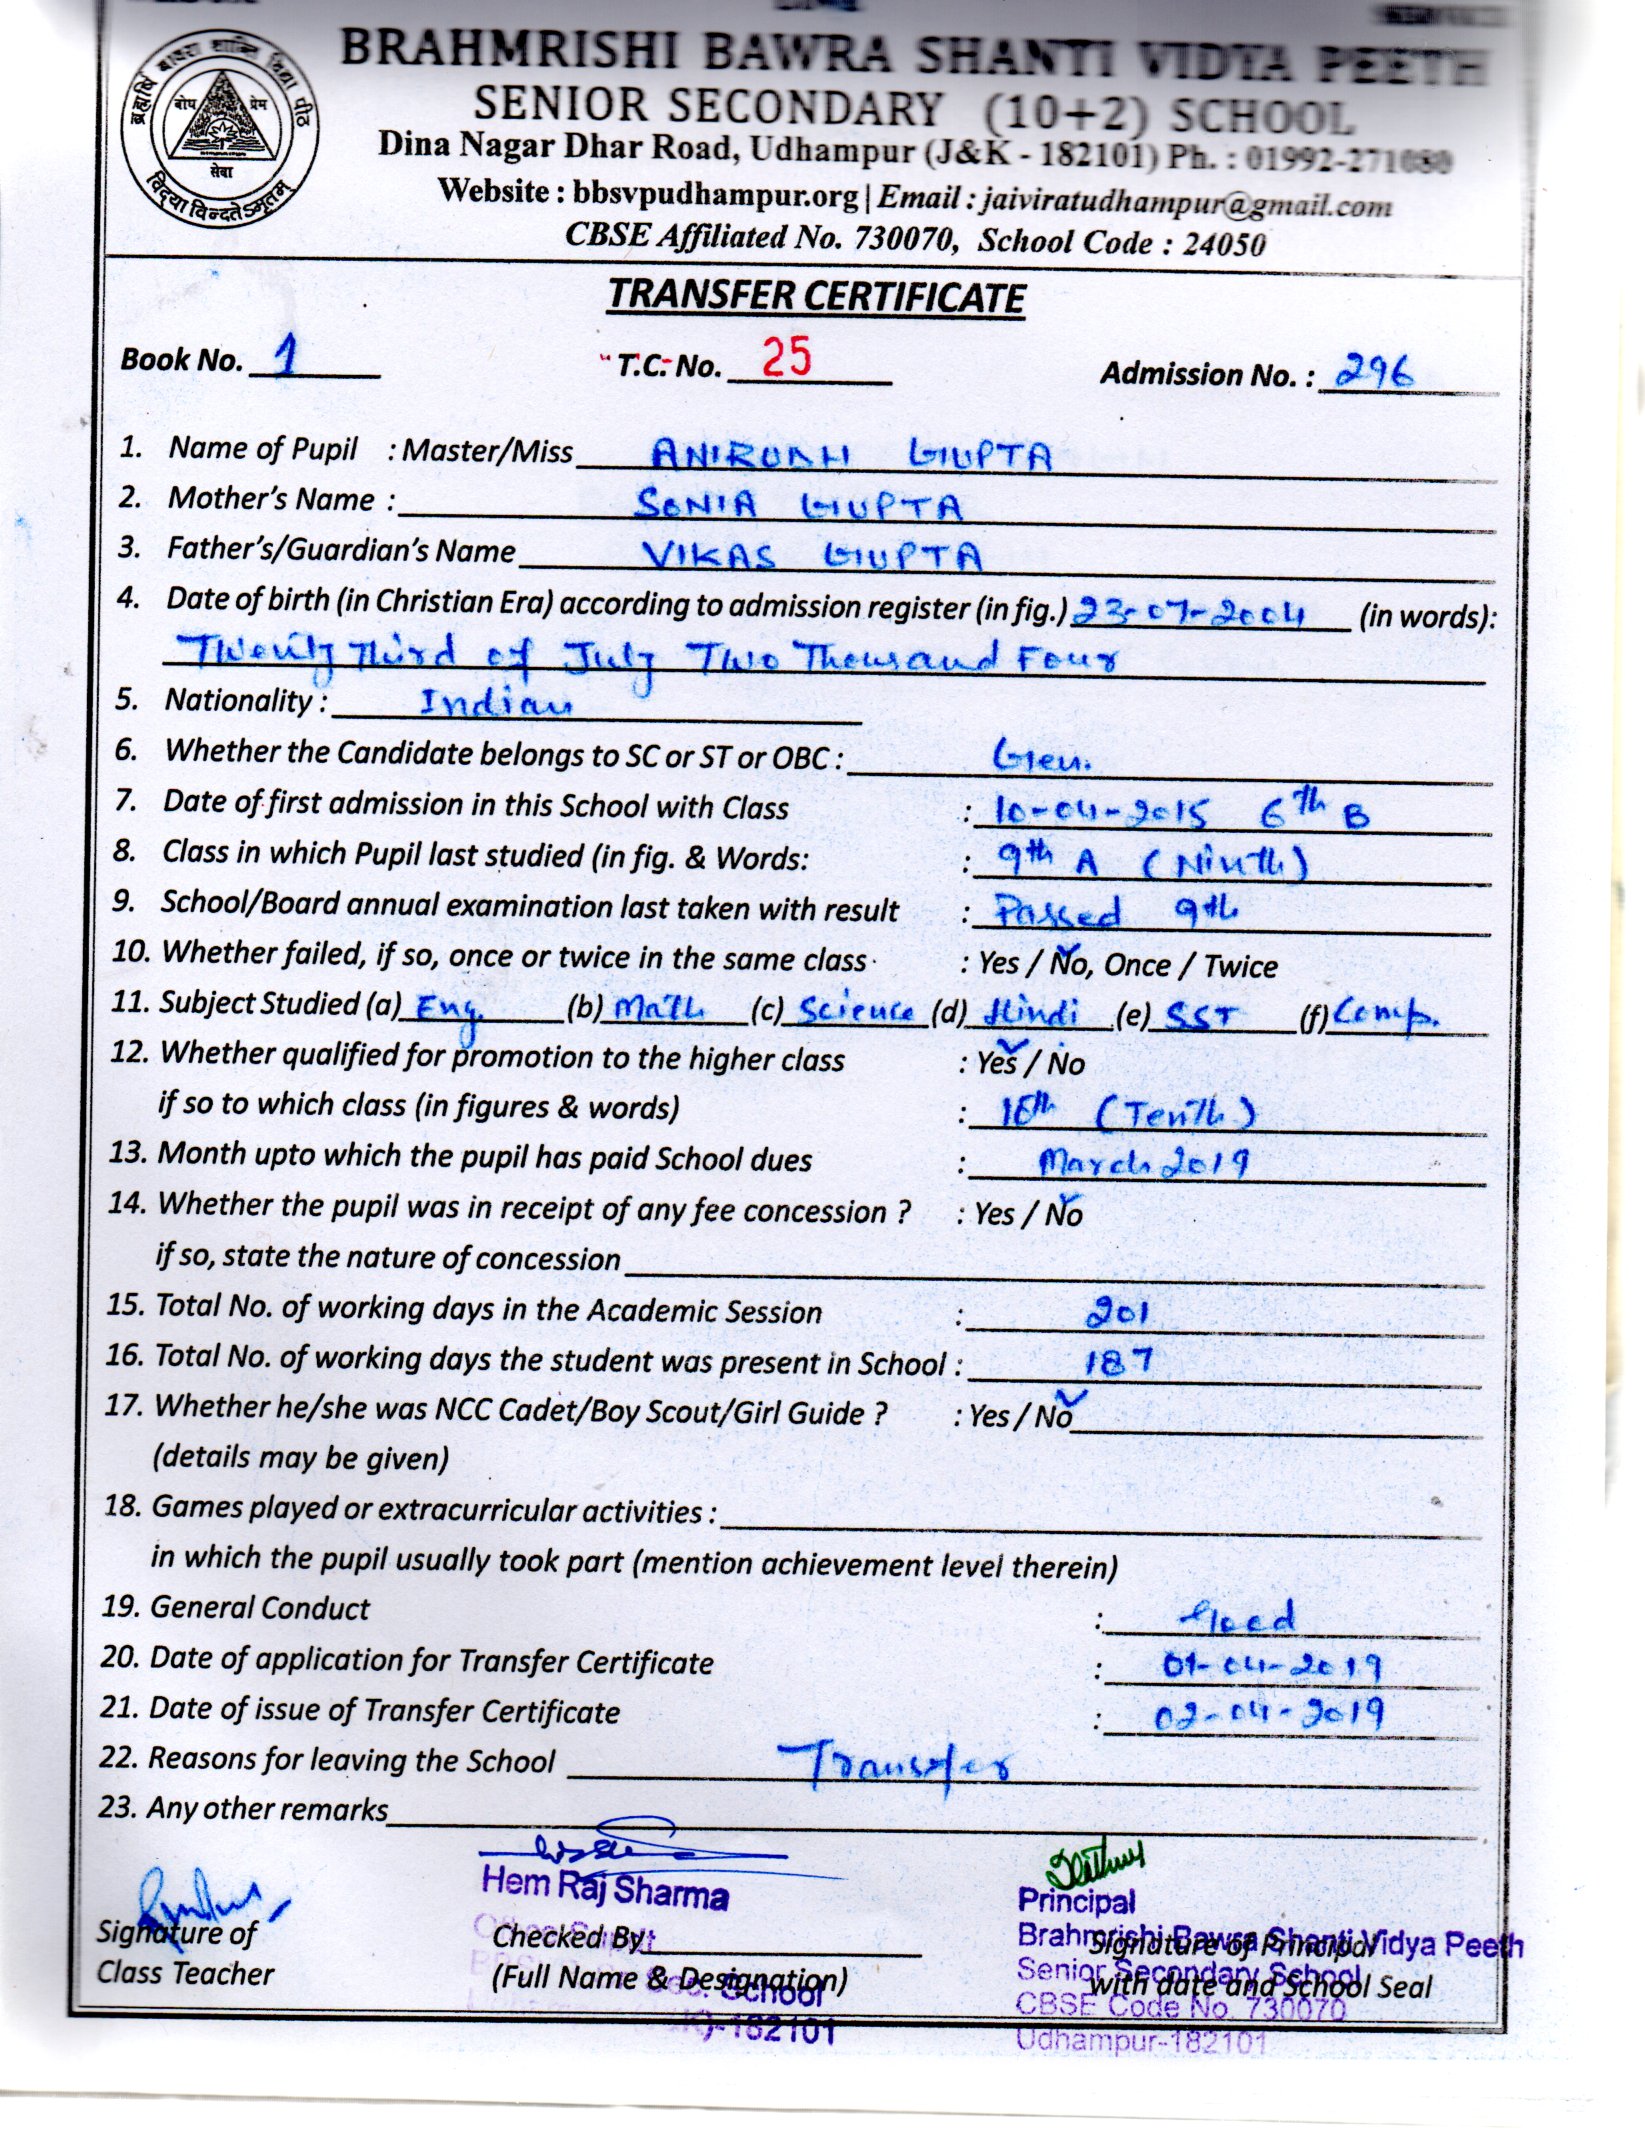 ब्रह्मर्षि बावरा शान्ति विद्या पीठ
बोध प्रेम
सेवा
विद्या विन्दतेऽमृतम्
BRAHMRISHI BAWRA SHANTI VIDYA PEETH
SENIOR SECONDARY (10+2) SCHOOL
Dina Nagar Dhar Road, Udhampur (J&K - 182101) Ph. : 01992-271080
Website : bbsvpudhampur.org | Email : jaiviratudhampur@gmail.com
CBSE Affiliated No. 730070, School Code : 24050
TRANSFER CERTIFICATE
Book No. 1 T.C. No. 25 Admission No. : 296
1. Name of Pupil : Master/Miss ANIRUDH GUPTA
2. Mother's Name : SONIA GUPTA
3. Father's/Guardian's Name VIKAS GUPTA
4. Date of birth (in Christian Era) according to admission register (in fig.) 23-07-2004 (in words):
Twenty Third of July Two Thousand Four
5. Nationality : Indian
6. Whether the Candidate belongs to SC or ST or OBC : Gen.
7. Date of first admission in this School with Class : 10-04-2015 6th B
8. Class in which Pupil last studied (in fig. & Words: : 9th A (Ninth)
9. School/Board annual examination last taken with result : Passed 9th
10. Whether failed, if so, once or twice in the same class : Yes / No, Once / Twice
11. Subject Studied (a) Eng. (b) Math (c) Science (d) Hindi (e) SST (f) Comp.
12. Whether qualified for promotion to the higher class : Yes / No
if so to which class (in figures & words) : 10th (Tenth)
13. Month upto which the pupil has paid School dues : March 2019
14. Whether the pupil was in receipt of any fee concession ? : Yes / No
if so, state the nature of concession
15. Total No. of working days in the Academic Session : 201
16. Total No. of working days the student was present in School : 187
17. Whether he/she was NCC Cadet/Boy Scout/Girl Guide ? : Yes / No
(details may be given)
18. Games played or extracurricular activities :
in which the pupil usually took part (mention achievement level therein)
19. General Conduct : Good
20. Date of application for Transfer Certificate : 01-04-2019
21. Date of issue of Transfer Certificate : 02-04-2019
22. Reasons for leaving the School Transfer
23. Any other remarks
Hem Raj Sharma
Principal
Brahmrishi Bawra Shanti Vidya Peeth
Senior Secondary School
CBSE Code No. 730070
Udhampur-182101
Signature of Checked By: Signature of Principal
Class Teacher (Full Name & Designation) with date and School Seal
School
-182101